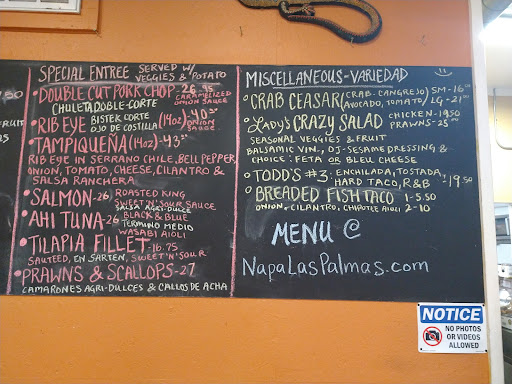 SPECIAL ENTREE SERVED W/ VEGGIES & POTATO
• DOUBLE CUT PORK CHOP - 26.95 CARAMELIZED ONION SAUCE
CHULETA DOBLE-CORTE
• RIB EYE BISTEK CORTE OJO DE COSTILLA (14oz) -40.95 ONION SAUCE
• TAMPIQUEÑA (14oz) -43
RIB EYE IN SERRANO CHILE, BELL PEPPER,
ONION, TOMATO, CHEESE, CILANTRO &
SALSA RANCHERA
• SALMON -26 ROASTED KING SWEET'N'SOUR SAUCE
SALSA AGRI-DULCE
• AHI TUNA -26 BLACK & BLUE
TERMINO MEDIO
WASABI AIOLI
• TILAPIA FILLET -16.75
SAUTEED, EN SARTEN, SWEET'N'SOUR
• PRAWNS & SCALLOPS -27
CAMARONES AGRI-DULCES & CALLOS DE ACHA
MISCELLANEOUS-VARIEDAD
• CRAB CEASAR (CRAB-CANGREJO) SM-16
AVOCADO, TOMATO/ LG-21
• LADY'S CRAZY SALAD CHICKEN-19.50
PRAWNS-25
SEASONAL VEGGIES & FRUIT
BALSAMIC VIN, DJ-SESAME DRESSING &
CHOICE: FETA OR BLEU CHEESE
• TODD'S #3: ENCHILADA, TOSTADA,
HARD TACO, R&B -19.50
• BREADED FISH TACO 1-5.50
ONION, CILANTRO, CHIPOTLE AIOLI 2-10
MENU @
NAPALASPALMAS.COM
NOTICE
NO PHOTOS
OR VIDEOS
ALLOWED